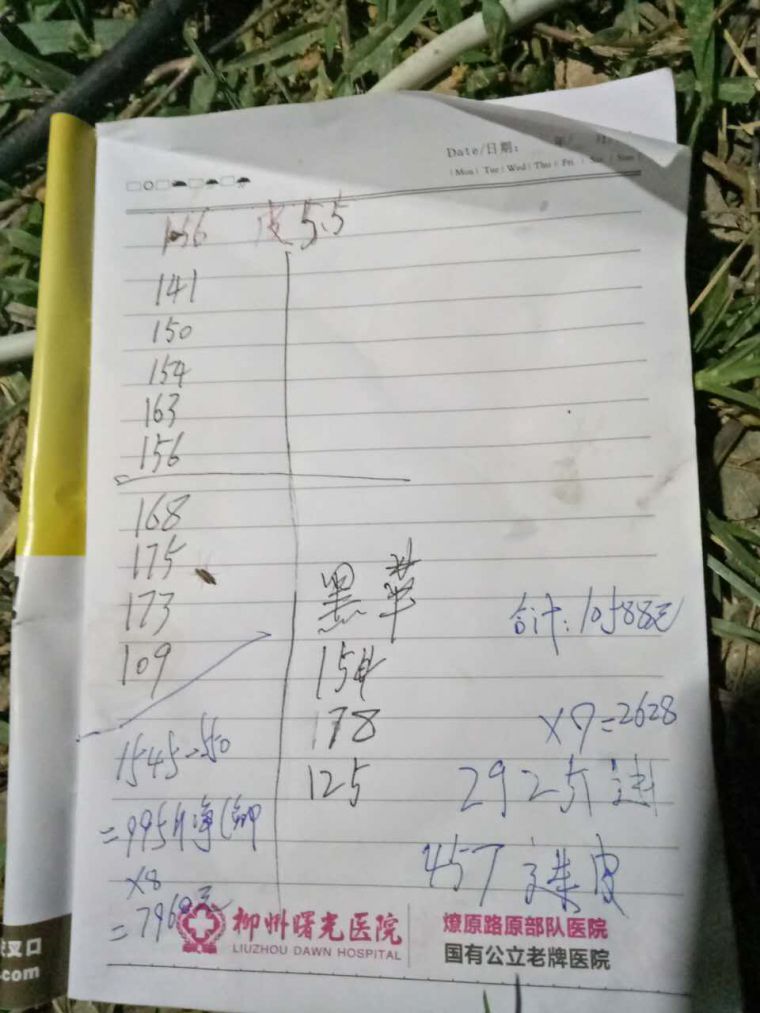 Date/日期: 年/ 月/
(Mon) Tue/Wed/Thu/Fri / Sat / Sun)
皮 5.5
141
150
154
163
156
168
175
173
109
黑苹
154
178
125
合计:10588元
×9=2628
292斤
457 皮
=995斤净
×8
柳州曙光医院
LIUZHOU DAWN HOSPITAL
燎原路原部队医院
国有公立老牌医院
叉口
.com